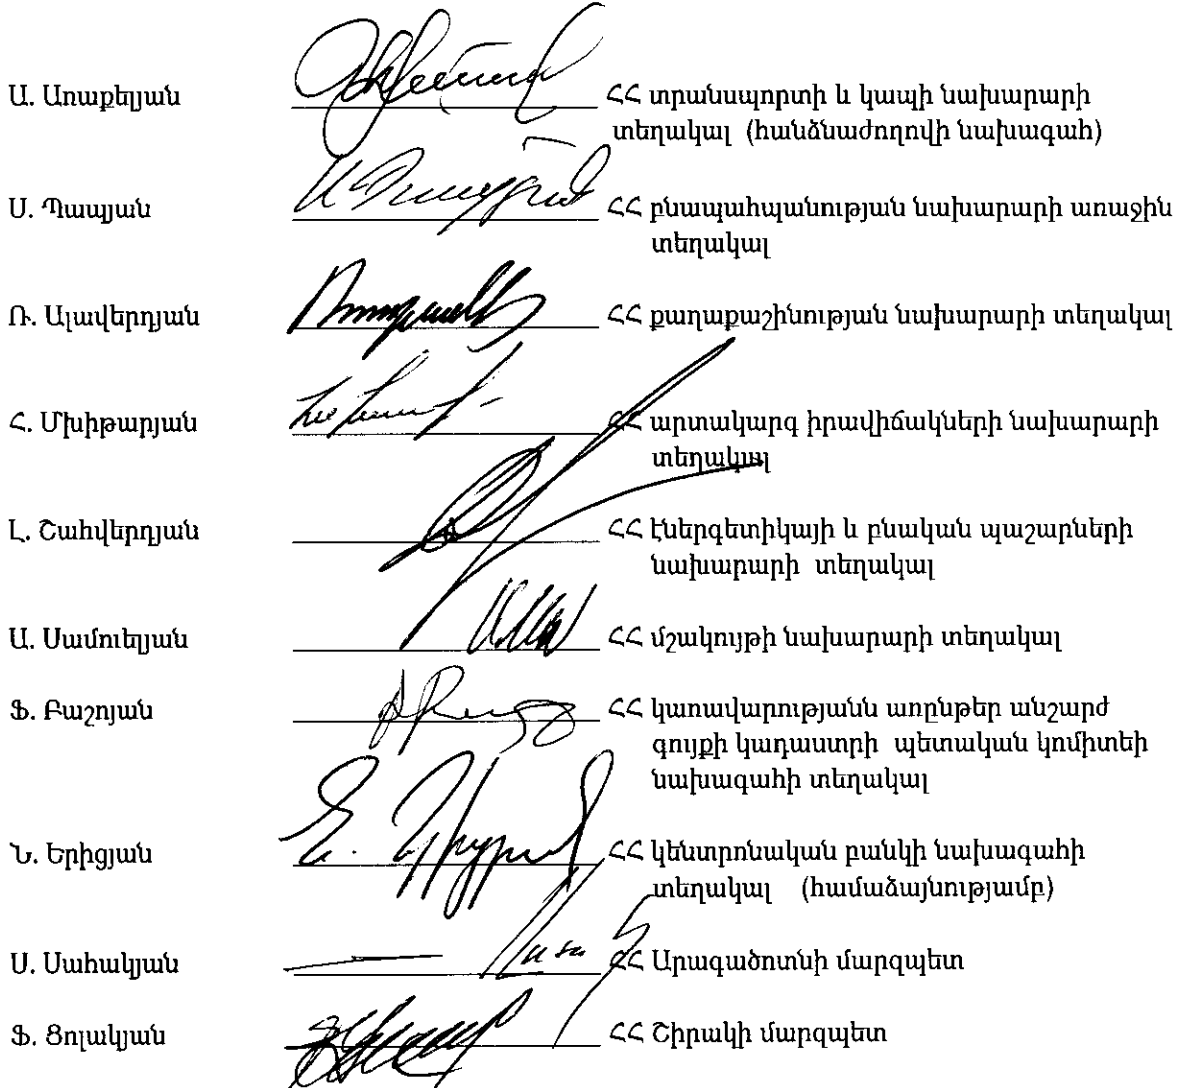 Ա. Առաքելյան ՀՀ տրանսպորտի և կապի նախարարի
տեղակալ (հանձնաժողովի նախագահ)
Ս. Պապյան ՀՀ բնապահպանության նախարարի առաջին
տեղակալ
Ռ. Ալավերդյան ՀՀ քաղաքաշինության նախարարի տեղակալ
Հ. Մխիթարյան ՀՀ արտակարգ իրավիճակների նախարարի
տեղակալ
Լ. Շահվերդյան ՀՀ էներգետիկայի և բնական պաշարների
նախարարի տեղակալ
Ա. Սամուելյան ՀՀ մշակույթի նախարարի տեղակալ
Ֆ. Բաշոյան ՀՀ կառավարությանն առընթեր անշարժ
գույքի կադաստրի պետական կոմիտեի
նախագահի տեղակալ
Ն. Երիցյան ՀՀ կենտրոնական բանկի նախագահի
տեղակալ (համաձայնությամբ)
Ս. Սահակյան ՀՀ Արագածոտնի մարզպետ
Ֆ. Ցոլակյան ՀՀ Շիրակի մարզպետ